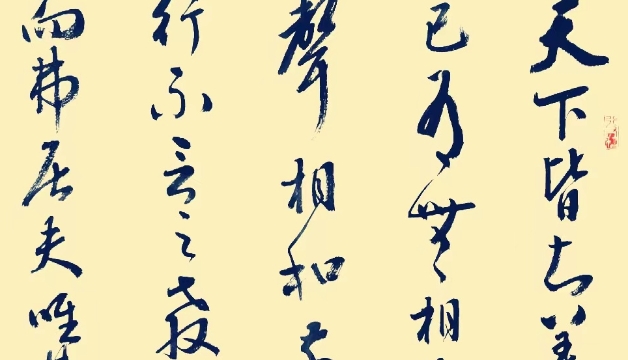 天下皆知美
已有無相
聲相和
行不言之教
而弗居夫唯